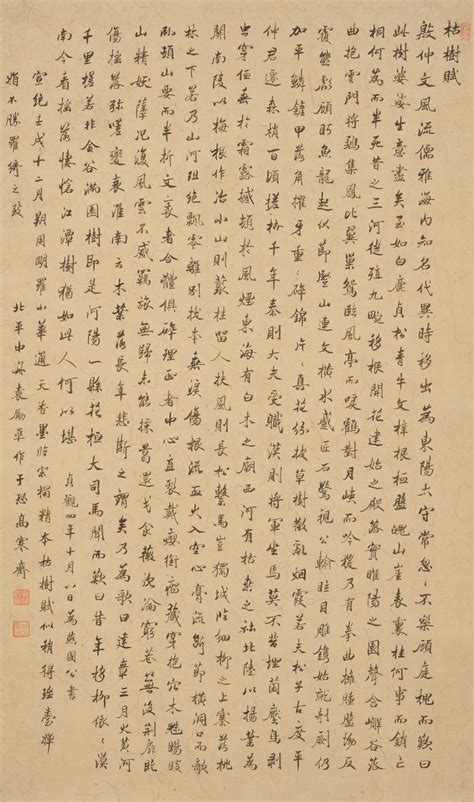 枯樹賦
殷仲文風流儒雅海內知名代異時移出為東陽太守常忽忽不樂顧庭槐而歎曰
此樹婆娑生意盡矣至如白鹿貞松青牛文梓根柢盤魄山崖表裏桂何事而銷亡
桐何為而半死昔之三河徙殖九畹移根開花建始之殿落實睢陽之園聲含嶰谷
曲抱雲門將雛集鳳比翼巢鴛臨風亭而唳鶴對月峽而吟猿乃有拳曲擁腫盤坳反
覆熊彪顧盼魚龍起伏節豎山連文橫水蹙匠石驚視公輸眩目雕鐫始就剞劂仍
加平鱗鏟甲落角摧牙重重碎錦片片真花紛披草樹散亂煙霞若夫松子古度平
仲君遷森梢百頃槎枿千年秦則大夫受職漢則將軍坐焉莫不苔埋菌壓鳥剝
蟲穿低垂於霜露撼頓於風煙東海有白木之廟西河有枯桑之社北陸以楊葉為
關南陵以梅根作冶小山則叢桂留人扶風則長松繫馬豈獨城臨細柳之上塞落桃
林之下若乃山河阻絕飄零離別拔本垂淚傷根流血火入空心膏流斷節橫洞口而欹
臥頓山要而半折文衺者合體俱碎理正者中心直裂戴癭銜瘤藏穿抱穴木魅睗睒
山精妖孽況復風雲不感羈旅無歸未能採葛還成食薇沉淪窮巷蕪沒荊扉既
傷搖落彌嗟變衰淮南云木葉落長年悲斯之謂矣乃為歌曰建章三月火黃河
千里槎若非金谷滿園樹即是河陽一縣花桓大司馬聞而歎曰昔年移柳依依漢
南今看搖落悽愴江潭樹猶如此人何以堪 貞觀四年十月八日為燕國公書
宣統壬戌十二月朔用明羅小華通天香墨臨宋搨精本枯樹賦似稍得瑤臺嬋
娟不勝羅綺之致
北平中舟袁勵準作于恐高寒齋